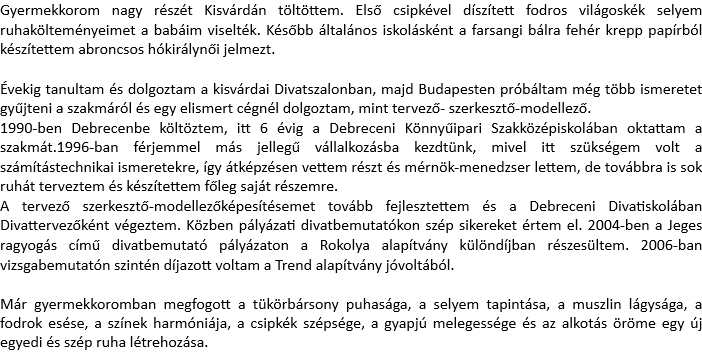 Gyermekkorom nagy részét Kisvárdán töltöttem. Első csipkével díszített fodros világoskék selyem
ruhakölteményeimet a babáim viselték. Később általános iskolásként a farsangi bálra fehér krepp papírból
készítettem abroncsos hókirálynői jelmezt.
Évekig tanultam és dolgoztam a kisvárdai Divatszalonban, majd Budapesten próbáltam még több ismeretet
gyűjteni a szakmáról és egy elismert cégnél dolgoztam, mint tervező- szerkesztő-modellező.
1990-ben Debrecenbe költöztem, itt 6 évig a Debreceni Könnyűipari Szakközépiskolában oktattam a
szakmát.1996-ban férjemmel más jellegű vállalkozásba kezdtünk, mivel itt szükségem volt a
számítástechnikai ismeretekre, így átképzésen vettem részt és mérnök-menedzser lettem, de továbbra is sok
ruhát terveztem és készítettem főleg saját részemre.
A tervező szerkesztő-modellezőképesítésemet tovább fejlesztettem és a Debreceni Divatiskolában
Divattervezőként végeztem. Közben pályázati divatbemutatókon szép sikereket értem el. 2004-ben a Jeges
ragyogás című divatbemutató pályázaton a Rokolya alapítvány különdíjban részesültem. 2006-ban
vizsgabemutatón szintén díjazott voltam a Trend alapítvány jóvoltából.
Már gyermekkoromban megfogott a tükörbársony puhasága, a selyem tapintása, a muszlin lágysága, a
fodrok esése, a színek harmóniája, a csipkék szépsége, a gyapjú melegessége és az alkotás öröme egy új
egyedi és szép ruha létrehozása.